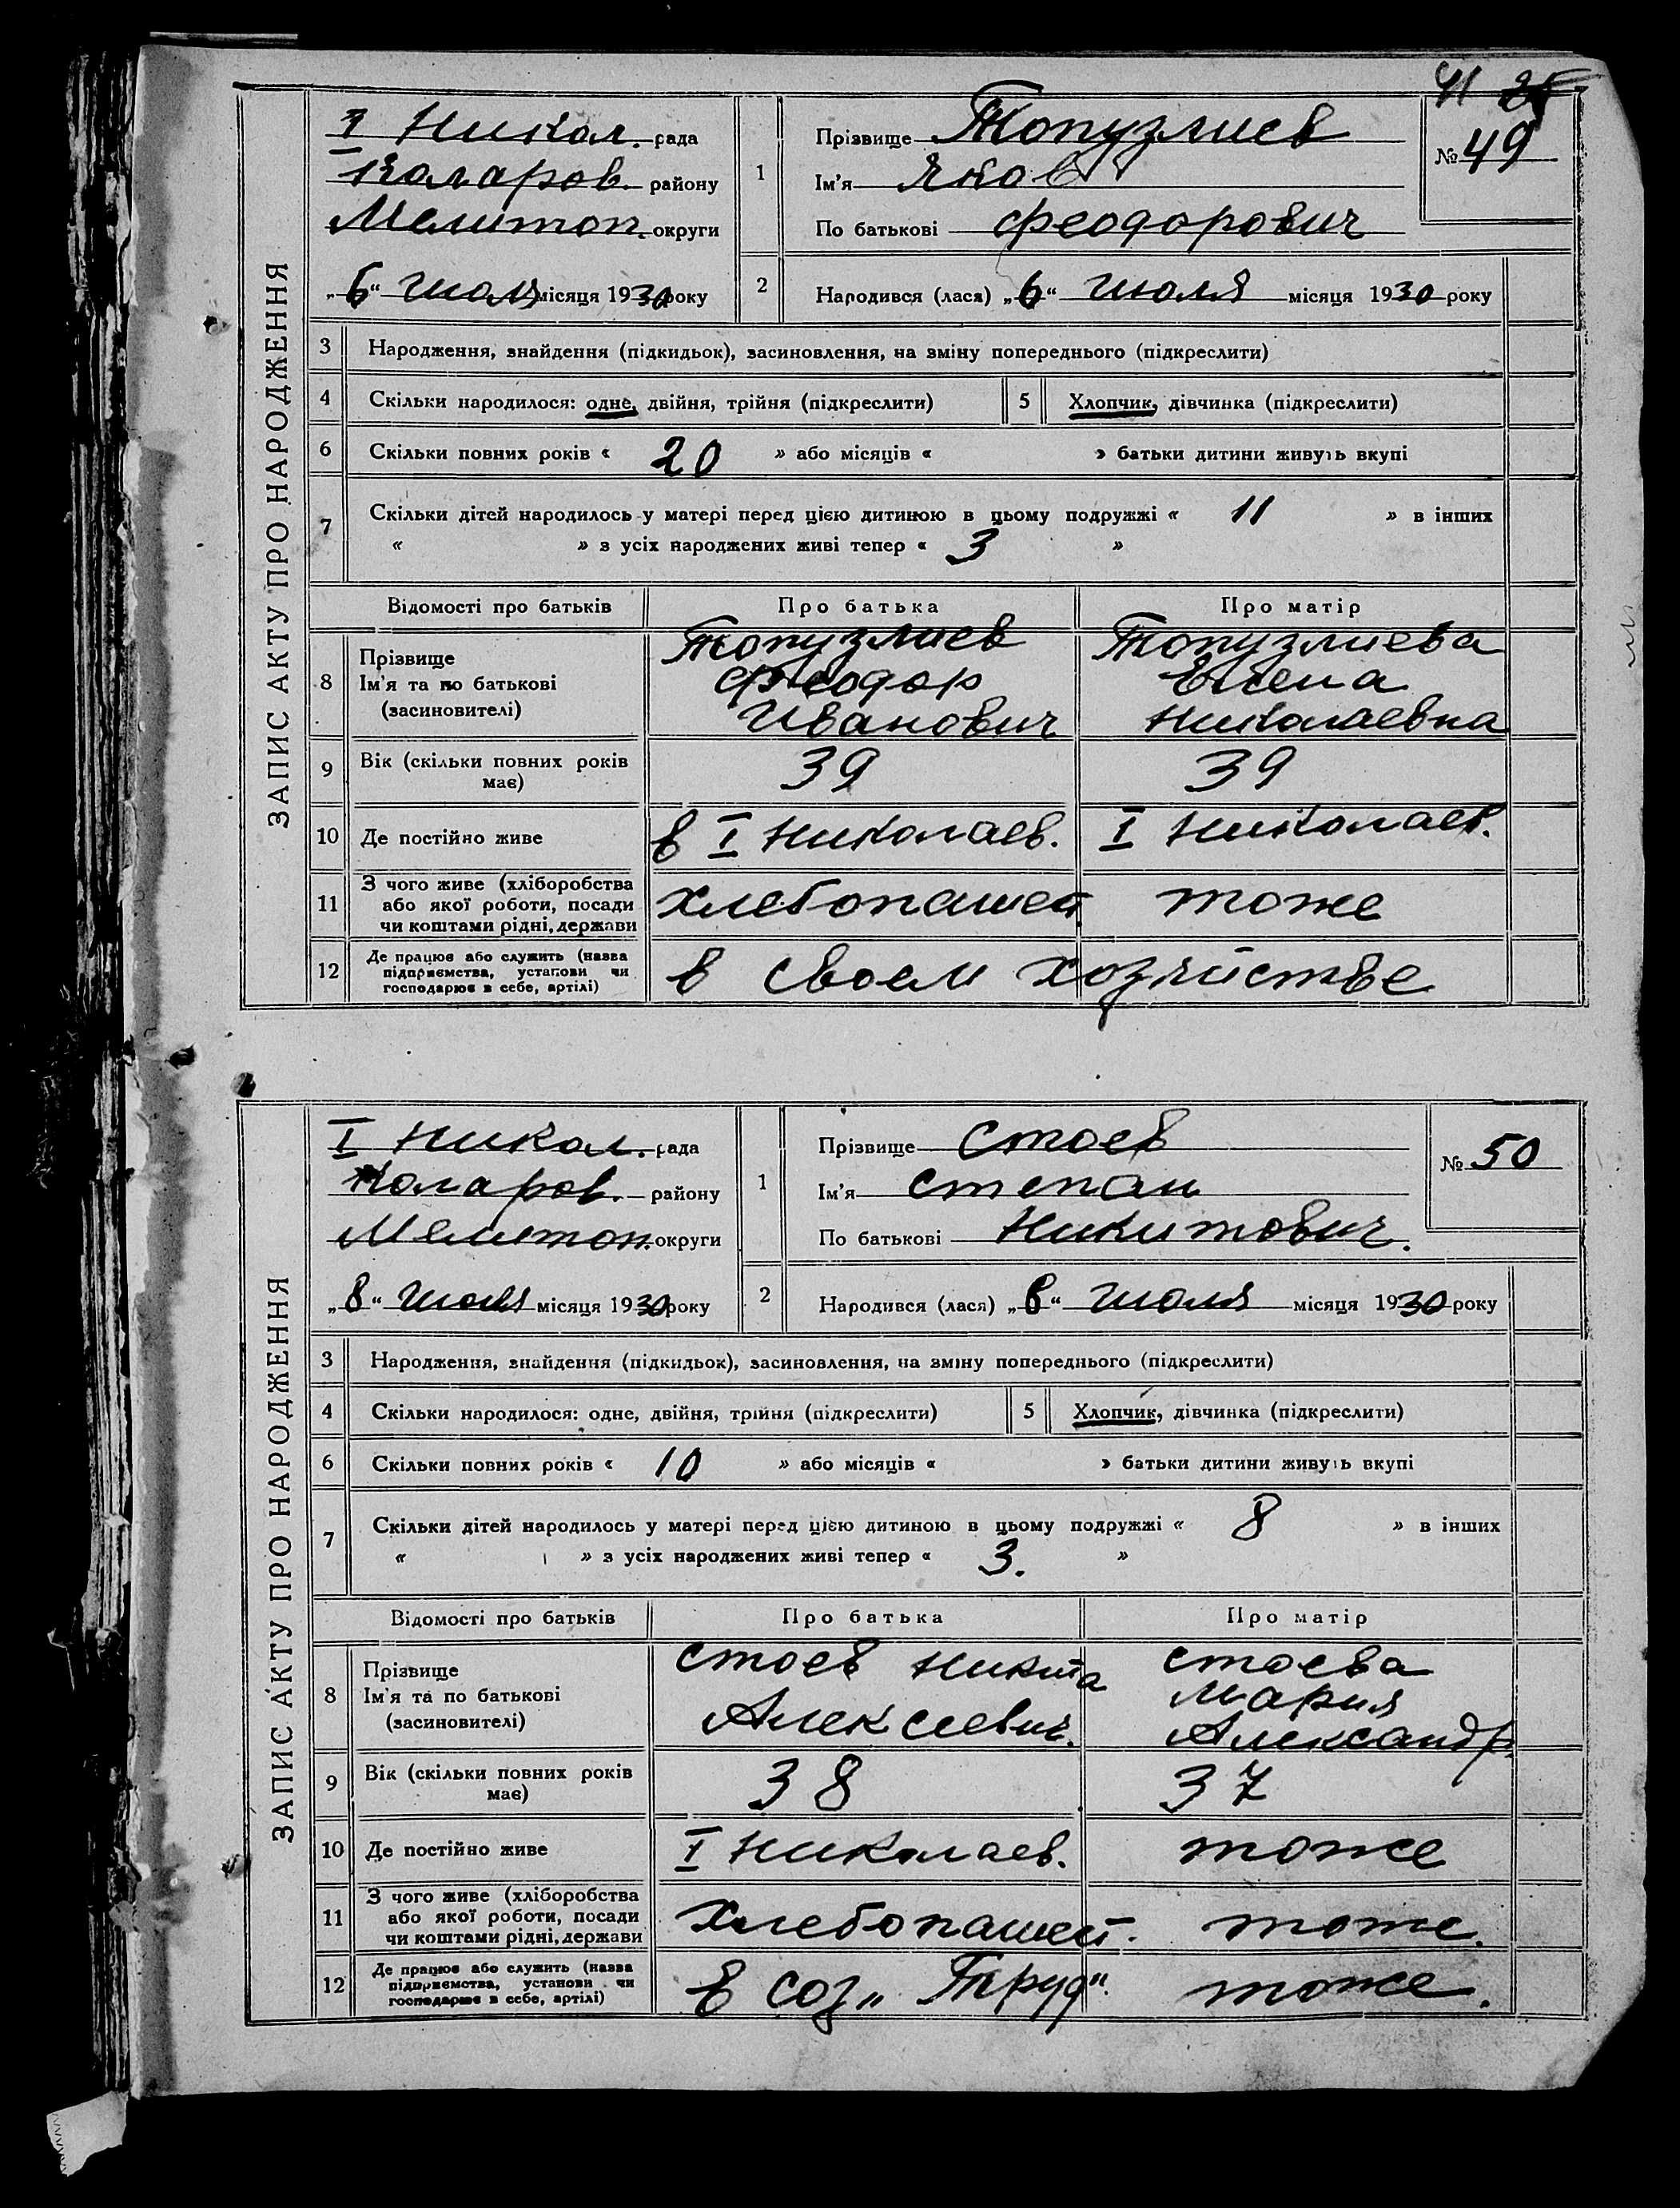 41 25
ЗАПИС АКТУ ПРО НАРОДЖЕННЯ
I Никол. рада
Коларов. району
Мелитоп. округи
„6“ Июля місяця 1930 року
1
Прізвище Топузлиев
Ім'я Яков
По батькові Феодорович
№ 49
2
Народився (лася) „6“ Июля місяця 1930 року
3 Народження, знайдення (підкидьок), засиновлення, на зміну попереднього (підкреслити)
4 Скільки народилося: одне, двійня, трійня (підкреслити) 5 Хлопчик, дівчинка (підкреслити)
6 Скільки повних років « 20 » або місяців « » батьки дитини живуть вкупі
7 Скільки дітей народилось у матері перед цією дитиною в цьому подружжі « 11 » в інших
« » з усіх народжених живі тепер « 3 »
Відомості про батьків Про батька Про матір
8 Прізвище
Ім'я та по батькові
(засиновителі)
Топузлиев
Феодор
Иванович
Топузлиева
Елена
Николаевна
9 Вік (скільки повних років
має)
39 39
10 Де постійно живе в I Николаев. I Николаев.
11 З чого живе (хліборобства
або якої роботи, посади
чи коштами рідні, держави
хлебопашест тоже
12 Де працює або служить (назва
підприємства, установи чи
господарює в себе, артілі)
в своем хозяйстве
ЗАПИС АКТУ ПРО НАРОДЖЕННЯ
I Никол. рада
Коларов. району
Мелитоп. округи
„8“ Июля місяця 1930 року
1
Прізвище Стоев
Ім'я Степан
По батькові Никитович.
№ 50
2
Народився (лася) „8“ Июля місяця 1930 року
3 Народження, знайдення (підкидьок), засиновлення, на зміну попереднього (підкреслити)
4 Скільки народилося: одне, двійня, трійня (підкреслити) 5 Хлопчик, дівчинка (підкреслити)
6 Скільки повних років « 10 » або місяців « » батьки дитини живуть вкупі
7 Скільки дітей народилось у матері перед цією дитиною в цьому подружжі « 8 » в інших
« » з усіх народжених живі тепер « 3. »
Відомості про батьків Про батька Про матір
8 Прізвище
Ім'я та по батькові
(засиновителі)
Стоев Никита
Алексеевич.
Стоева
Мария
Александр.
9 Вік (скільки повних років
має)
38 37
10 Де постійно живе I Николаев. тоже
11 З чого живе (хліборобства
або якої роботи, посади
чи коштами рідні, держави
Хлебопашест. тоже.
12 Де працює або служить (назва
підприємства, установи чи
господарює в себе, артілі)
в соз „Труд“. тоже.